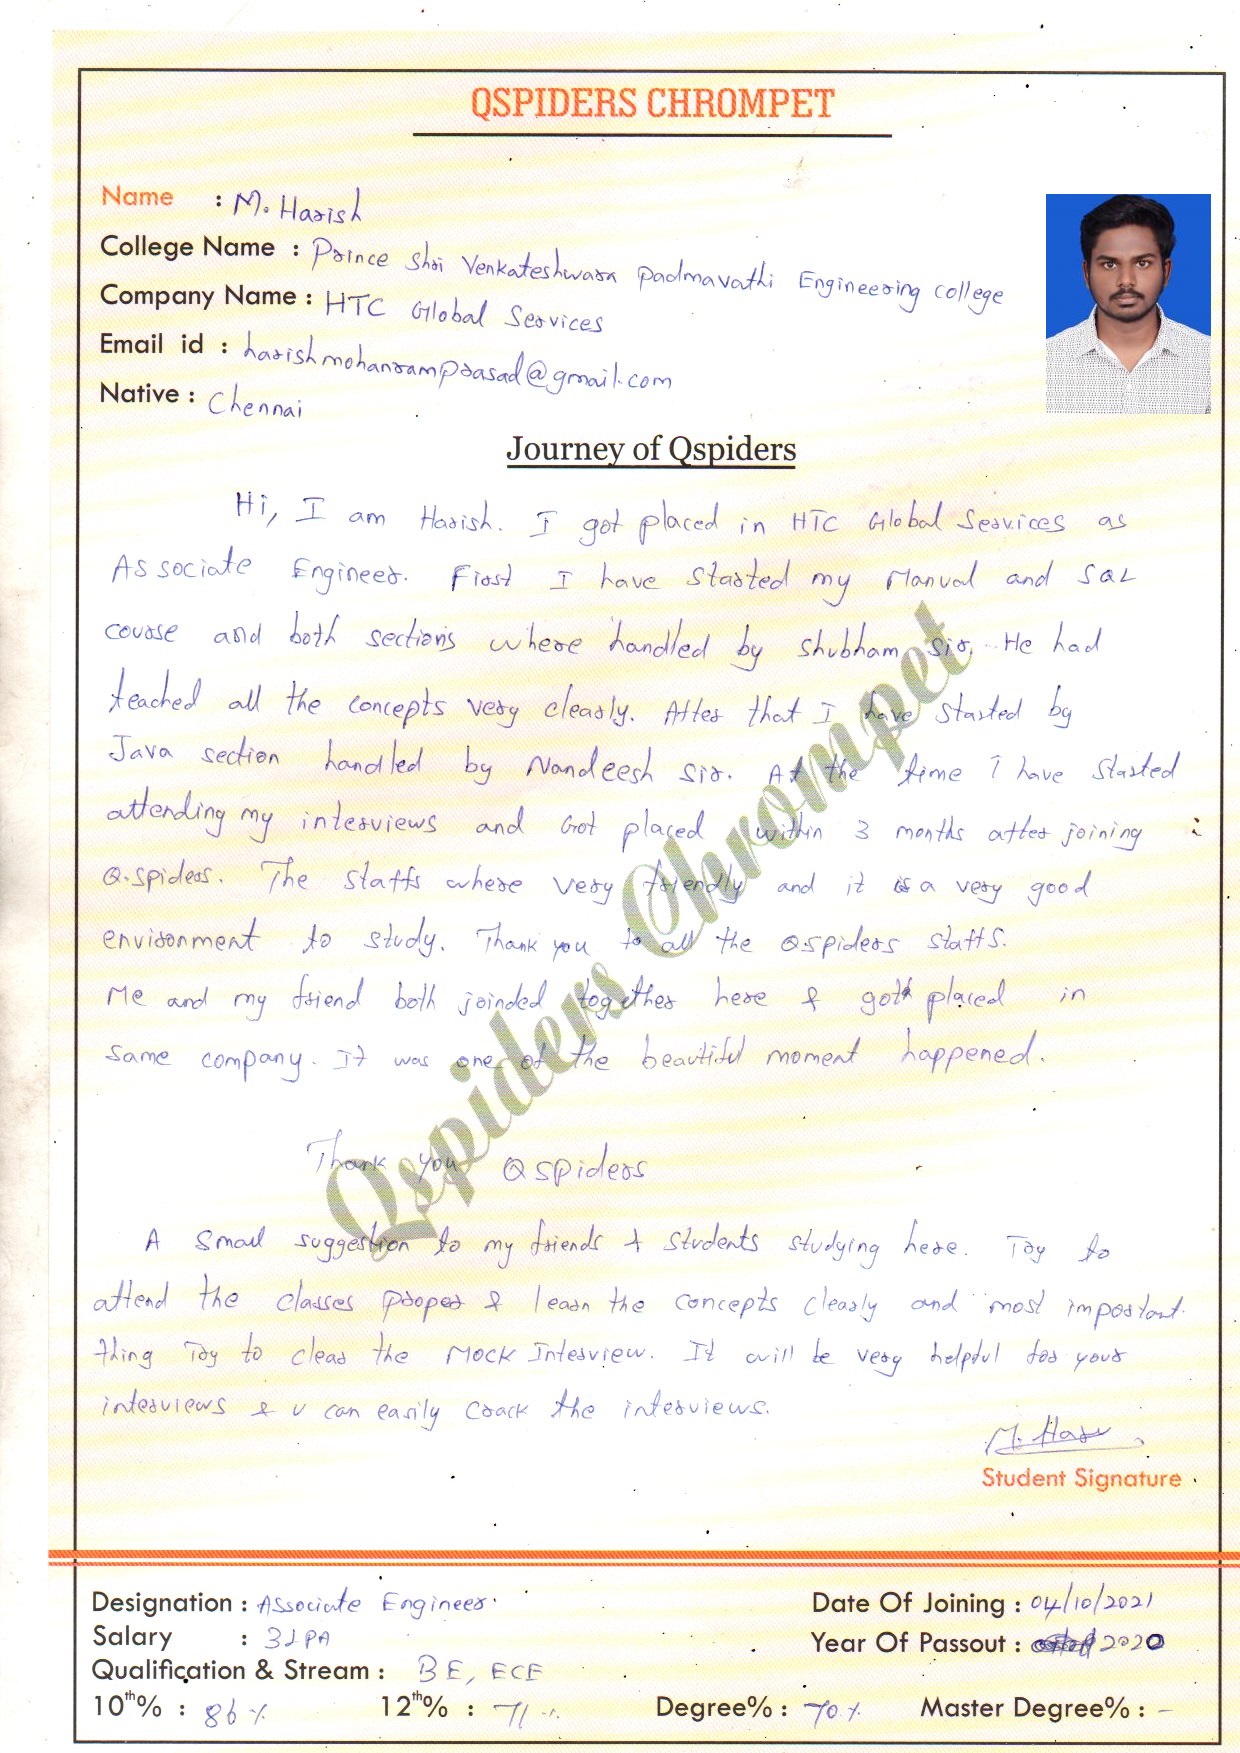 QSPIDERS CHROMPET
Name : M. Harish
College Name : Prince Shri Venkateshwara Padmavathi Engineering college
Company Name : HTC Global Services
Email id : harishmohanramprasad@gmail.com
Native : Chennai
Journey of Qspiders
Hi, I am Harish. I got placed in HTC Global Services as
Associate Engineer. First I have started my Manual and SQL
course and both sections where handled by Shubham sir. He had
teached all the concepts very clearly. After that I have started by
Java section handled by Nandeesh sir. At the time I have started
attending my interviews and Got placed within 3 months after joining
Q-spiders. The staffs where very friendly and it is a very good
environment to study. Thank you to all the Qspiders staffs.
Me and my friend both joinded together here & got placed in
same company. It was one of the beautiful moment happened.
Thank you Qspiders
A small suggestion to my friends & students studying here. Try to
attend the classes proper & learn the concepts clearly and most important
thing Try to clear the Mock Interview. It will be very helpful for your
interviews & u can easily crack the interviews.
M. Hari
Student Signature
Designation : Associate Engineer
Date Of Joining : 04/10/2021
Salary : 3LPA
Year Of Passout : 2020
Qualification & Stream : BE, ECE
10th% : 86 %
12th% : 71 %
Degree% : 70 %
Master Degree% : -
Qspiders Chrompet